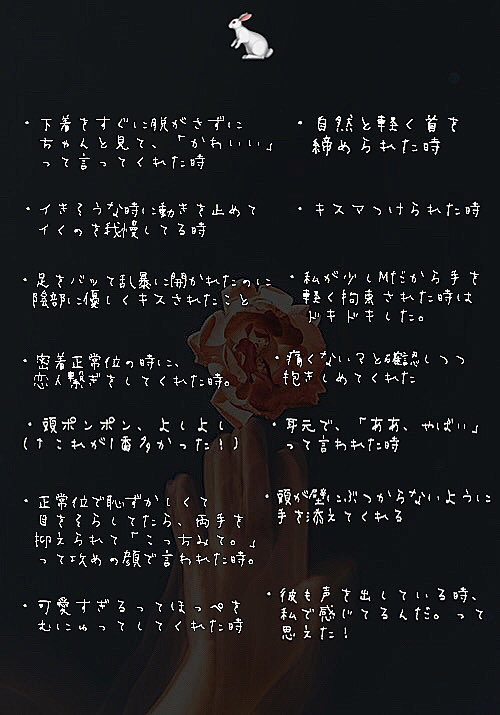 ・下着をすぐに脱がさずに
ちゃんと見て、「かわいい」
って言ってくれた時
・イきそうな時に動きを止めて
イくのを我慢してる時
・足をバッて乱暴に開かれたのに
陰部に優しくキスされたこと
・密着正常位の時に、
恋人繋ぎをしてくれた時。
・頭ポンポン、よしよし
(↑これが1番多かった!)
・正常位で恥ずかしくて
目をそらしてたら、両手を
抑えられて「こっちみて。」
って攻めの顔で言われた時。
・可愛すぎるってほっぺを
むにゅってしてくれた時
・自然と軽く首を
締められた時
・キスマつけられた時
・私が少しMだから手を
軽く拘束された時は
ドキドキした。
・痛くない?と確認しつつ
抱きしめてくれた
・耳元で、「ああ、やばい」
って言われた時
・頭が壁にぶつからないように
手を添えてくれる
・彼も声を出している時、
私で感じてるんだ。って
思えた!